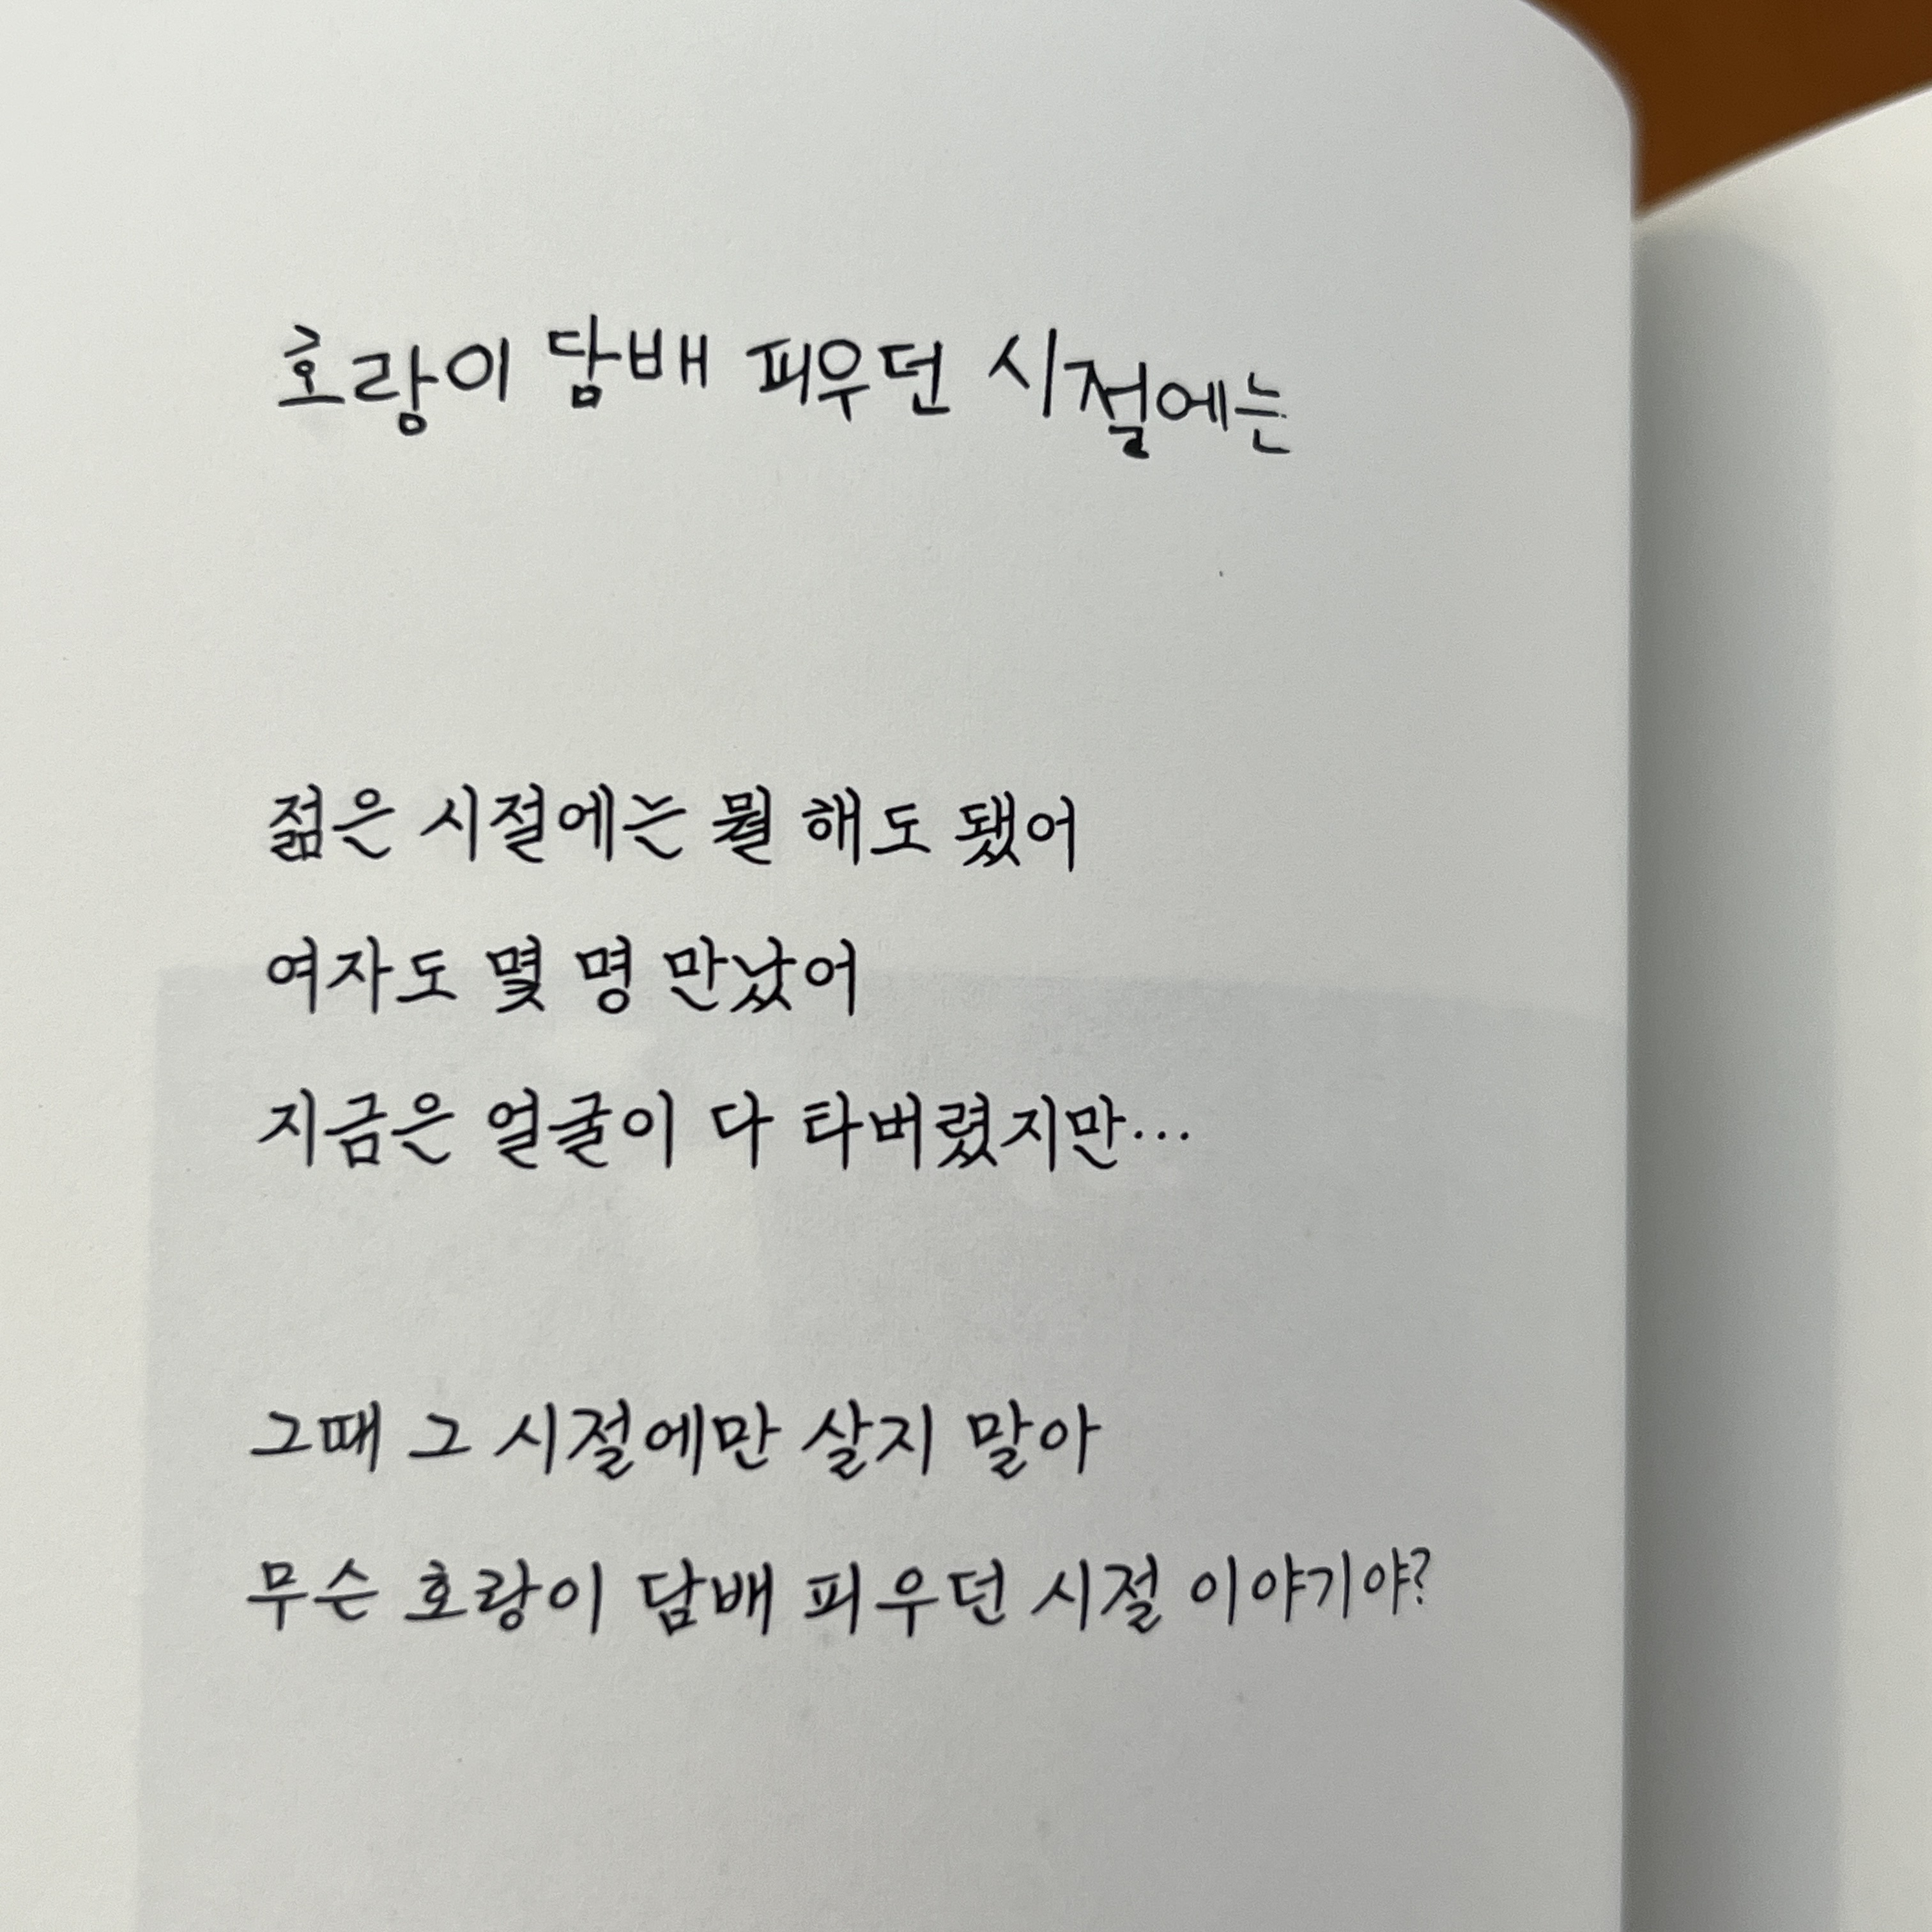 호랑이 담배 피우던 시절에는
젊은 시절에는 뭘 해도 됐어
여자도 몇 명 만났어
지금은 얼굴이 다 타버렸지만…
그때 그 시절에만 살지 말아
무슨 호랑이 담배 피우던 시절 이야기야?